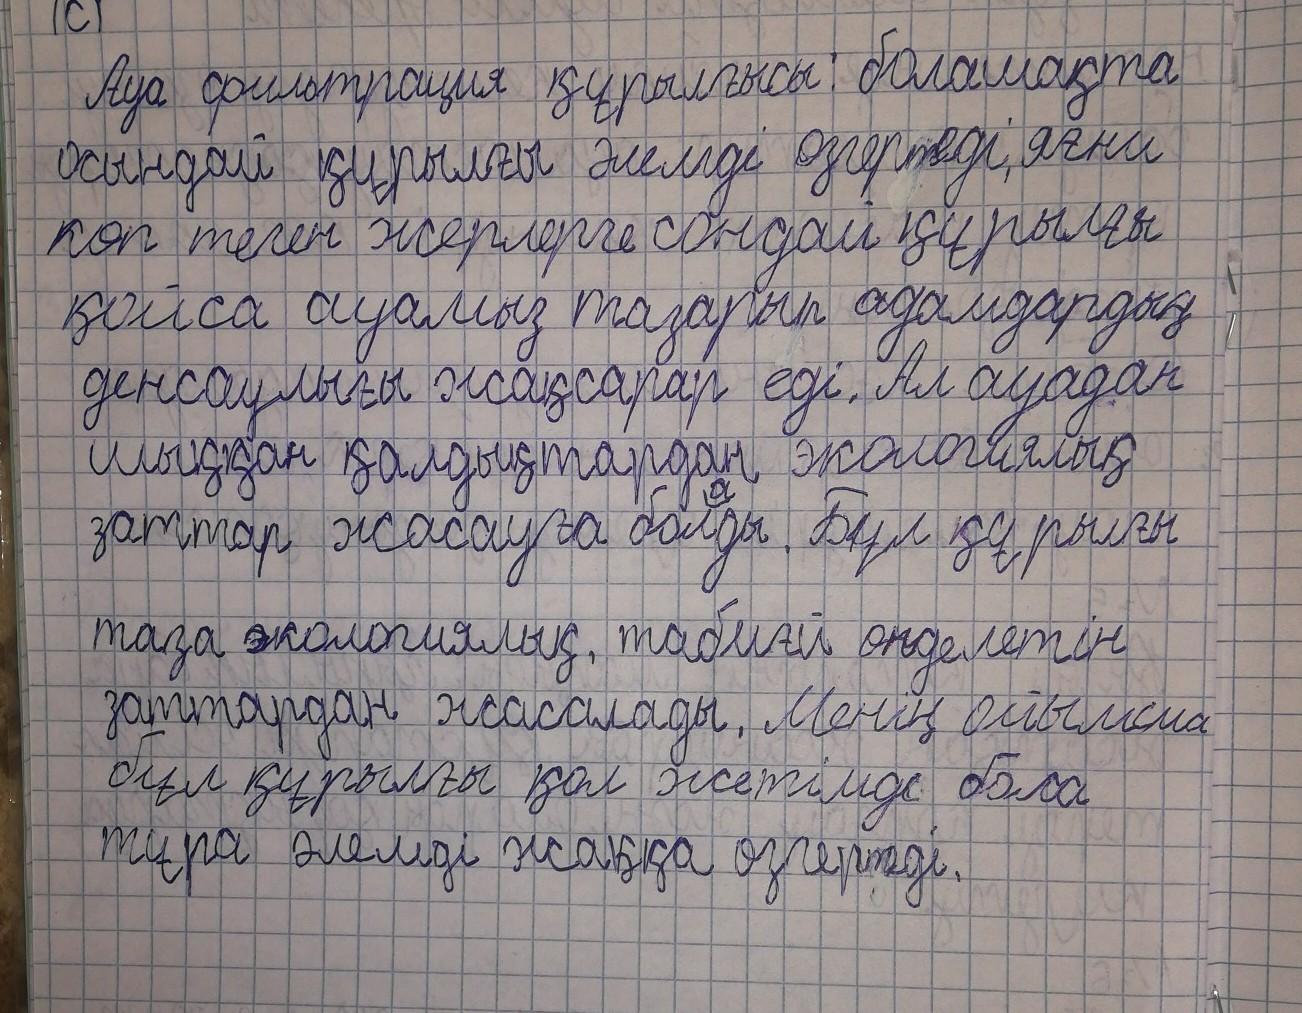 (С)
Ауа фильтрация құрылғысы: болашақта
осындай құрылғы әлемді өзгертеді, яғни
көп теген жерлерге сондай құрылғы
қойса ауамыз тазарып адамдардың
денсаулығы жақсарар еді. Ал ауадан
шыққан қалдықтардан экологиялық
заттар жасауға болады. Бұл құрылғы
таза экологиялық, табиғй өңделетін
заттардан жасалады. Менің ойымша
бұл құрылғы қол жетімде бола
тұра әлемді жаққа өзгертеді.